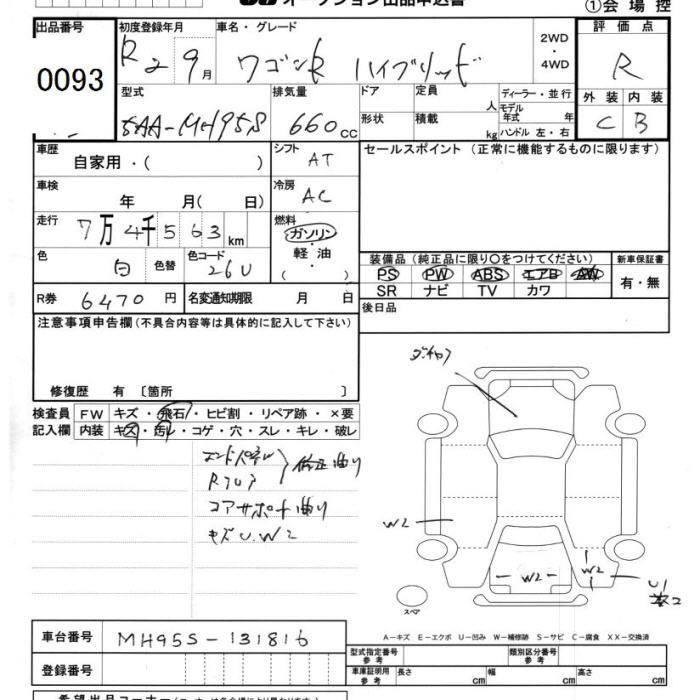 オークション出品申込書
①会場控
出品番号 初度登録年月 車名・グレード 2WD・4WD 評価点
0093
R2 9月 ワゴンR ハイブリッド R
型式 排気量 ドア 定員 人 ディーラー・並行 外装 内装
5AA-MH95S 660cc 形状 積載 kg モデル年式 年 C B
ハンドル 左・右
車歴 自家用・( ) シフト AT セールスポイント (正常に機能するものに限ります)
車検 年 月( 日) 冷房 AC
走行 7万4千563km 燃料 ガソリン・軽油・( )
色 白 色替 色コード 26U
装備品(純正品に限り○をつけてください) 新車保証書
PS PW ABS エアB AW 有・無
SR ナビ TV カワ
R券 6470円 名変通知期限 月 日 後日品
注意事項申告欄(不具合内容等は具体的に記入して下さい)
修復歴 有 〔箇所 〕
検査員記入欄 FW キズ・飛石・ヒビ割・リペア跡・×要
内装 キズ・汚れ・コゲ・穴・スレ・キレ・破レ
エンドパネル
Rフロア
修正曲り
コアサポート曲り
キズU.W2
W2
W2
W2
U1
スペア
A-キズ E-エクボ U-凹み W-補修跡 S-サビ C-腐食 XX-交換済
車台番号 MH95S-131816
型式指定番号 参考 類別区分番号 参考
登録番号 車庫証明用 参考 長さ cm 幅 cm 高さ cm